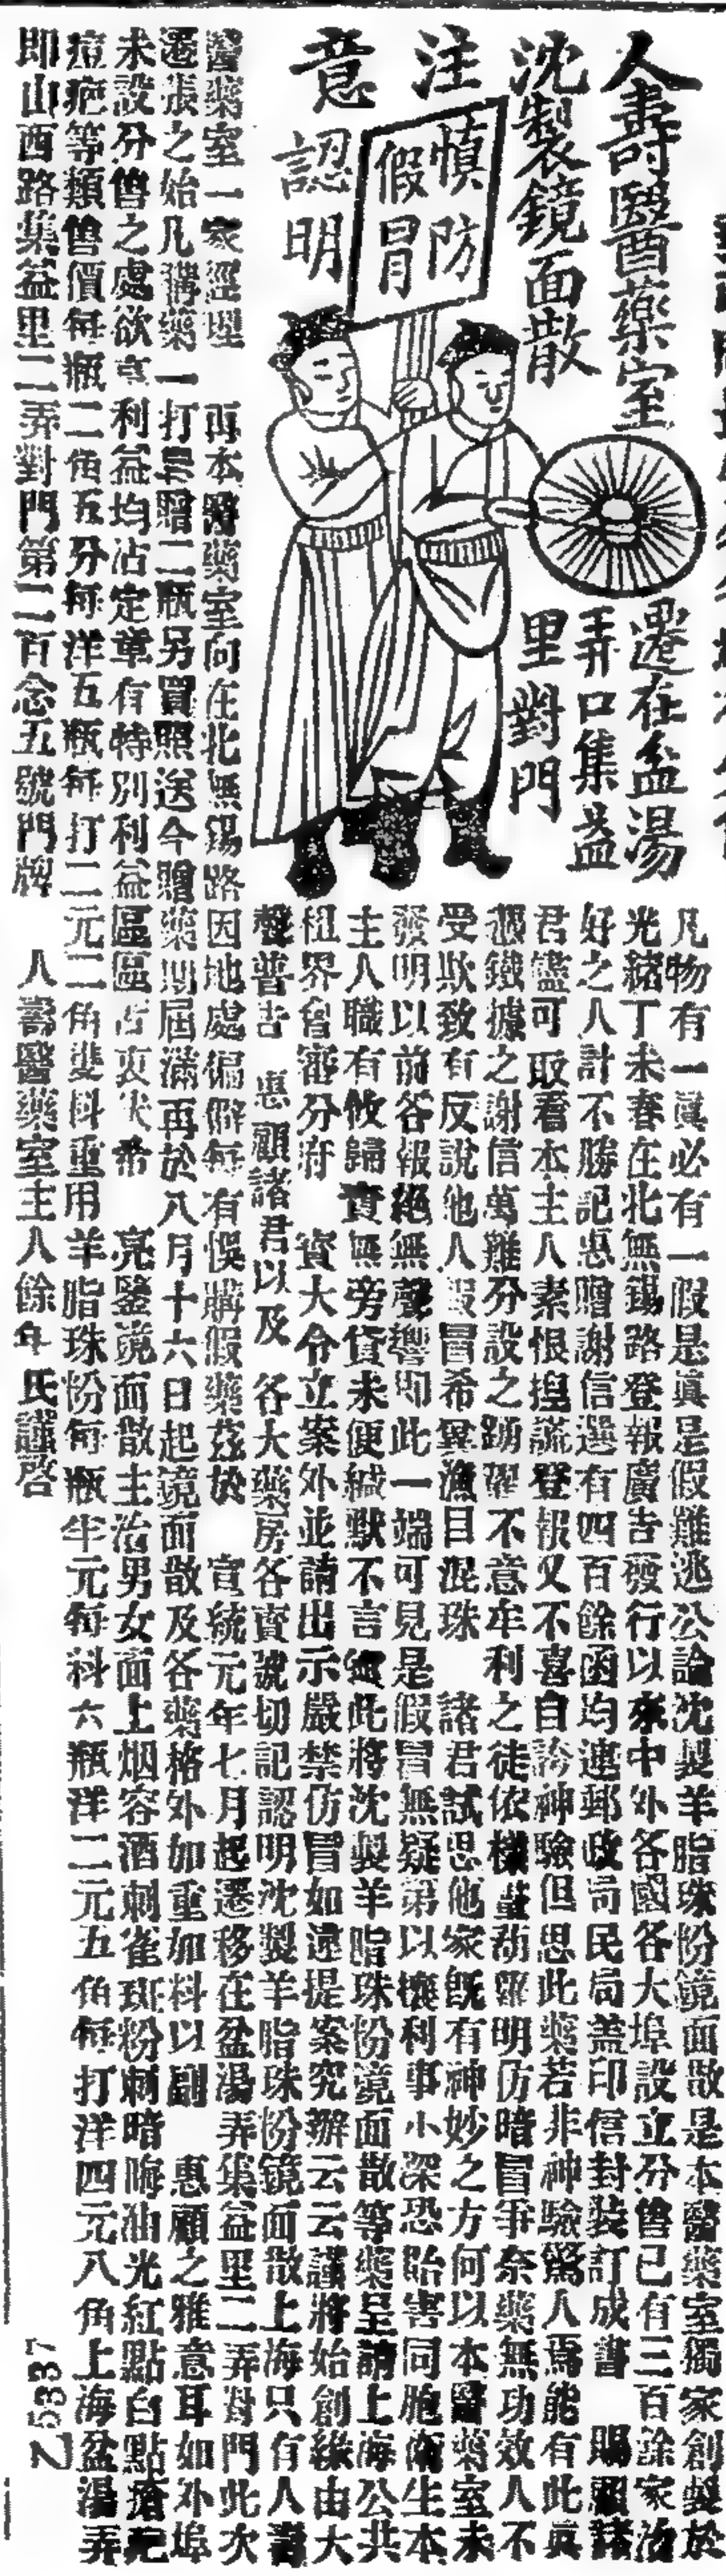 人壽醫藥室
沈製鏡面散
注意
認明
慎防
假冒
遷在盆湯
弄口集益
里對門
凡物有一眞必有一假是眞是假難逃公論沈製羊脂珠粉鏡面散是本醫藥室獨家創製於
光緒丁未春在北無錫路登報廣告發行以來中外各國各大埠設立分售已有三百餘家治
好之人計不勝記惠贈謝信選有四百餘函均連郵政局民局蓋印信封裝訂成書 賜顧諸
君儘可取看本主人素恨捏謊登報又不喜自誇神驗但思此藥若非神驗驚人焉能有此眞
憑鐵據之謝信萬難分設之踴躍不意牟利之徒依樣葫蘆明仿暗冒爭奈藥無功效人不
受欺致有反說他人假冒希冀漁目混珠 諸君試思他家旣有神妙之方何以本醫藥室未
發明以前各報絕無聲響卽此一端可見是假冒無疑第以攘利事小深恐貽害同胞衛生本
主人職有攸歸責無旁貸未便緘默不言爲此將沈製羊脂珠粉鏡面散等藥呈請上海公共
租界會審分府 寳大令立案外並請出示嚴禁仿冒如違提案究辦云云謹將始創緣由大
聲普告 惠顧諸君以及 各大藥房各寶號切記認明沈製羊脂珠粉鏡面散上海只有人壽
醫藥室一家經理 再本醫藥室向在北無錫路因地處偏僻每有悞購假藥茲於 宣統元年七月起遷移在盆湯弄集益里二弄對門此次
遷張之始凡購藥一打照贈二瓶另買照送今贈藥期屆滿再於八月十六日起鏡面散及各藥格外加重加料以副 惠顧之雅意耳如外埠
未設分售之處欲享利益均沾定章有特別利益區區苦衷伏希 亮鑒鏡面散主治男女面上烟容酒刺雀斑粉刺暗晦油光紅點白點瘡疤
痘疤等類售價每瓶二角五分每洋五瓶每打二元二角雙料重用羊脂珠粉每瓶半元每料六瓶洋二元五角每打洋四元八角上海盆湯弄
卽山西路集益里二弄對門第二百念五號門牌 人壽醫藥室主人餘年氏謹啓
Z5337